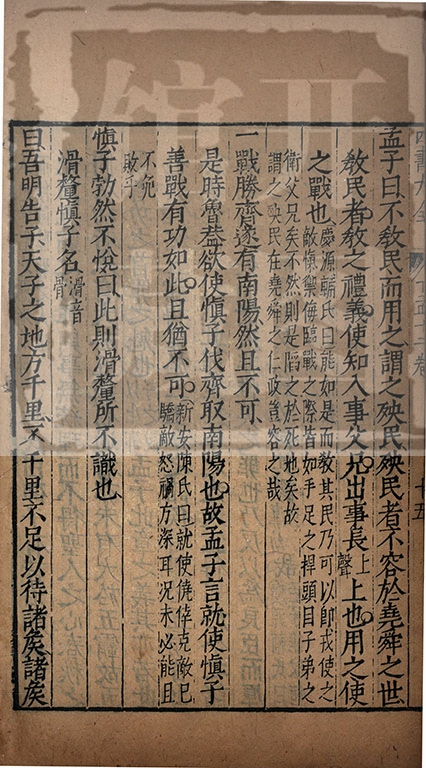 孟子曰不教民而用之謂之殃民殃民者不容於堯舜之世
教民者教之禮義使知入事父兄出事長上聲上也用之使
之戰也慶源輔氏曰能如是而教其民乃可以即戎使之
敵愾禦侮臨戰之際皆如手足之捍頭目子弟之
衛父兄矣不然則是陷之於死地矣故
謂之殃民在堯舜之仁政豈容之哉
一戰勝齊遂有南陽然且不可
是時魯蓋欲使慎子伐齊取南陽也故孟子言就使慎子
善戰有功如此且猶不可新安陳氏曰就使僥倖克敵已
驕敵怒禍方深耳況未必能且
不免
敗乎
慎子勃然不悅曰此則滑釐所不識也
滑釐慎子名滑音
骨
曰吾明告子天子之地方千里不千里不足以待諸矦諸矦